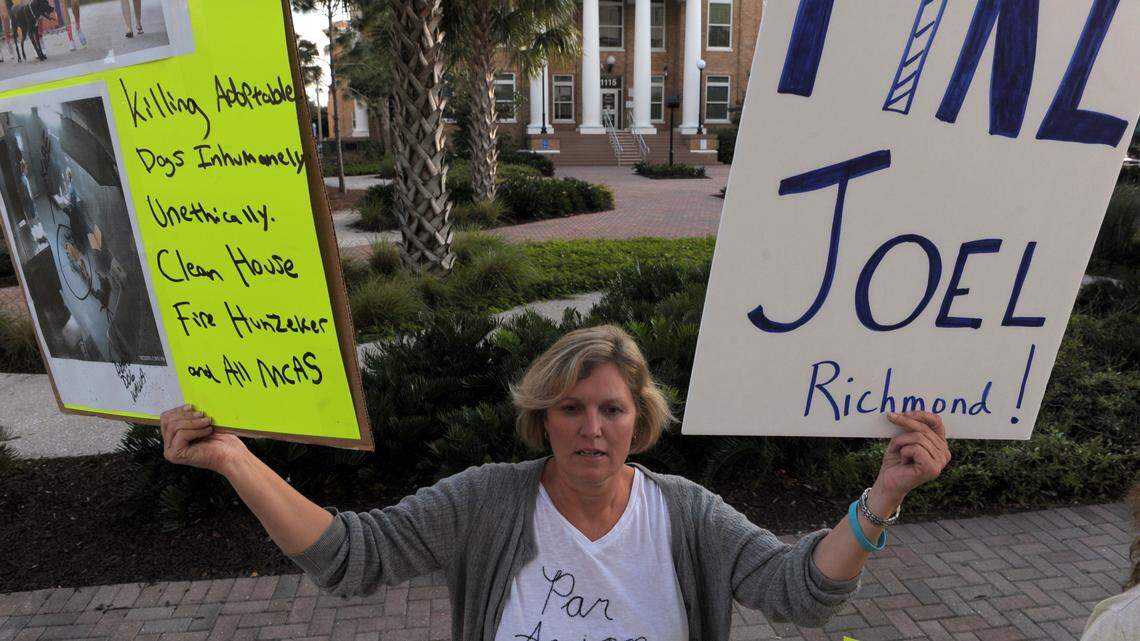 Killing Adoptable
Dogs Inhumanely
Unethically.
Clean House
Fire Hunzeker
and All MCAS
JOEL
Richmond!
1115
Par